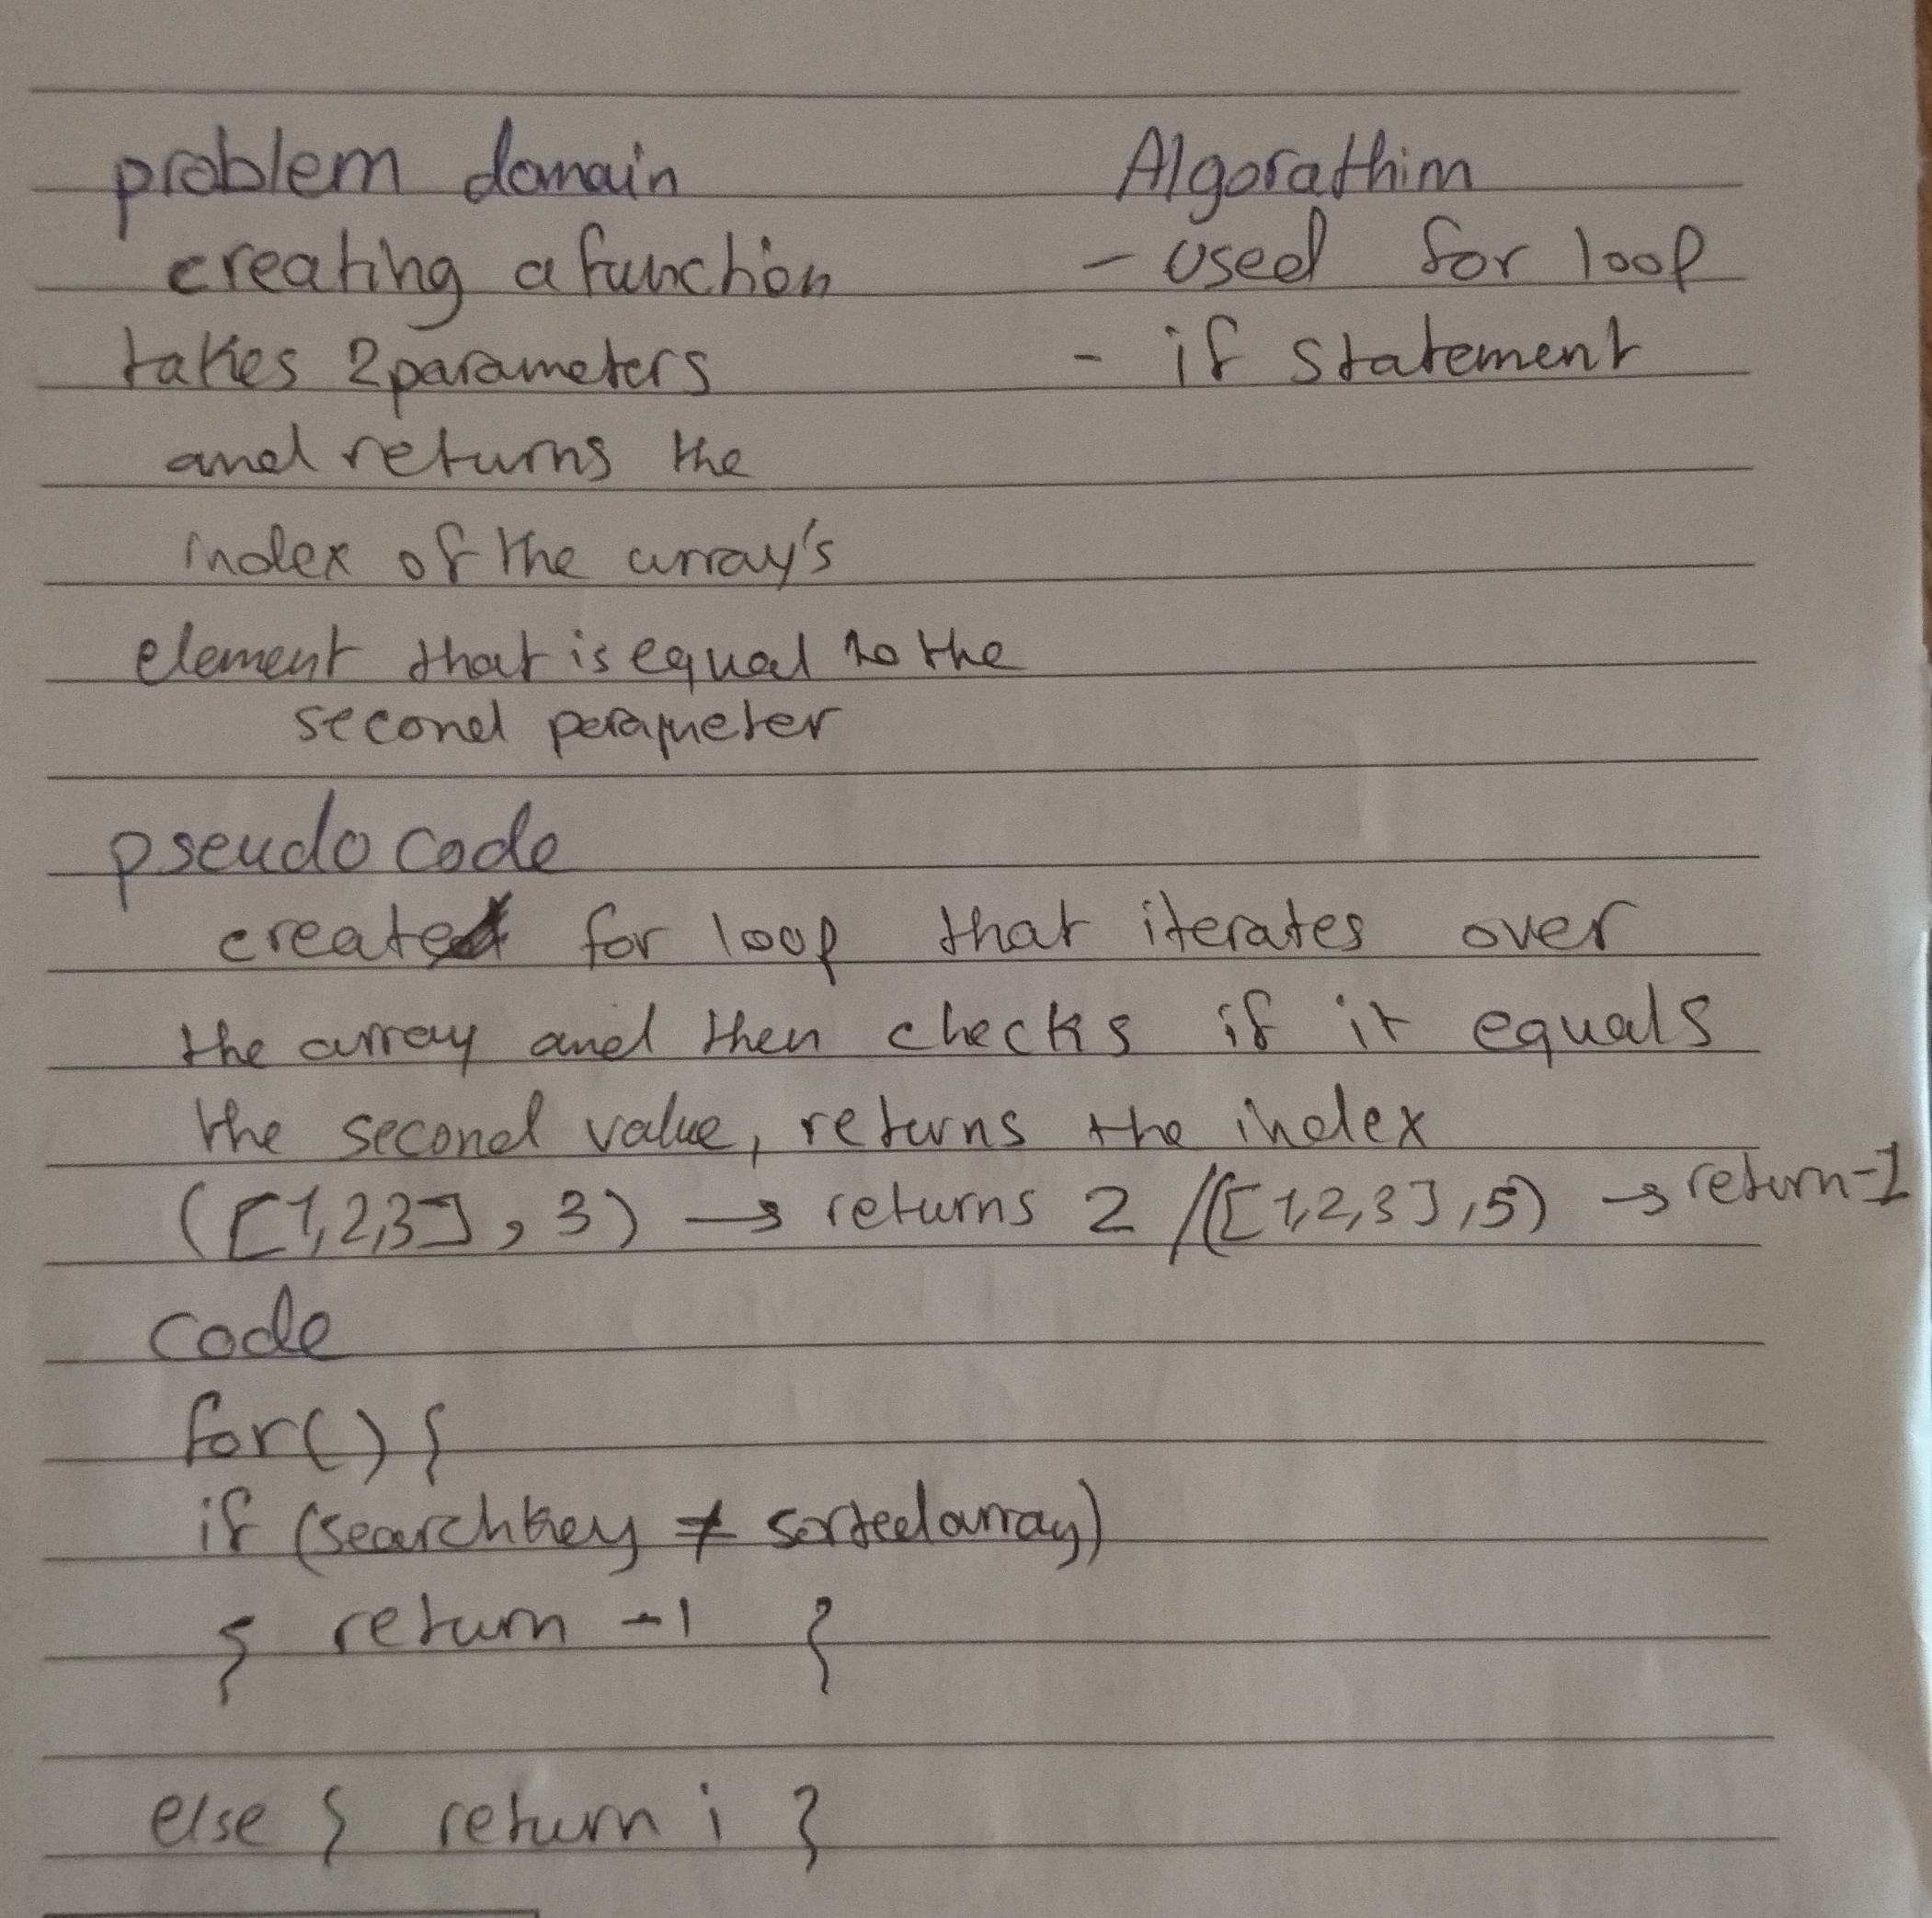 problem domain
creating a function
takes 2 parameters
and returns the
index of the array's
element that is equal to the
second perameter
Algorathim
- used for loop
- if statement
pseudo code
create for loop that iterates over
the array and then checks if it equals
the second value, returns the index
([1,2,3], 3) → returns 2 /([1,2,3],5) → return -1
code
for() {
if (searchkey ≠ sortedarray)
{ return -1 }
else { return i }